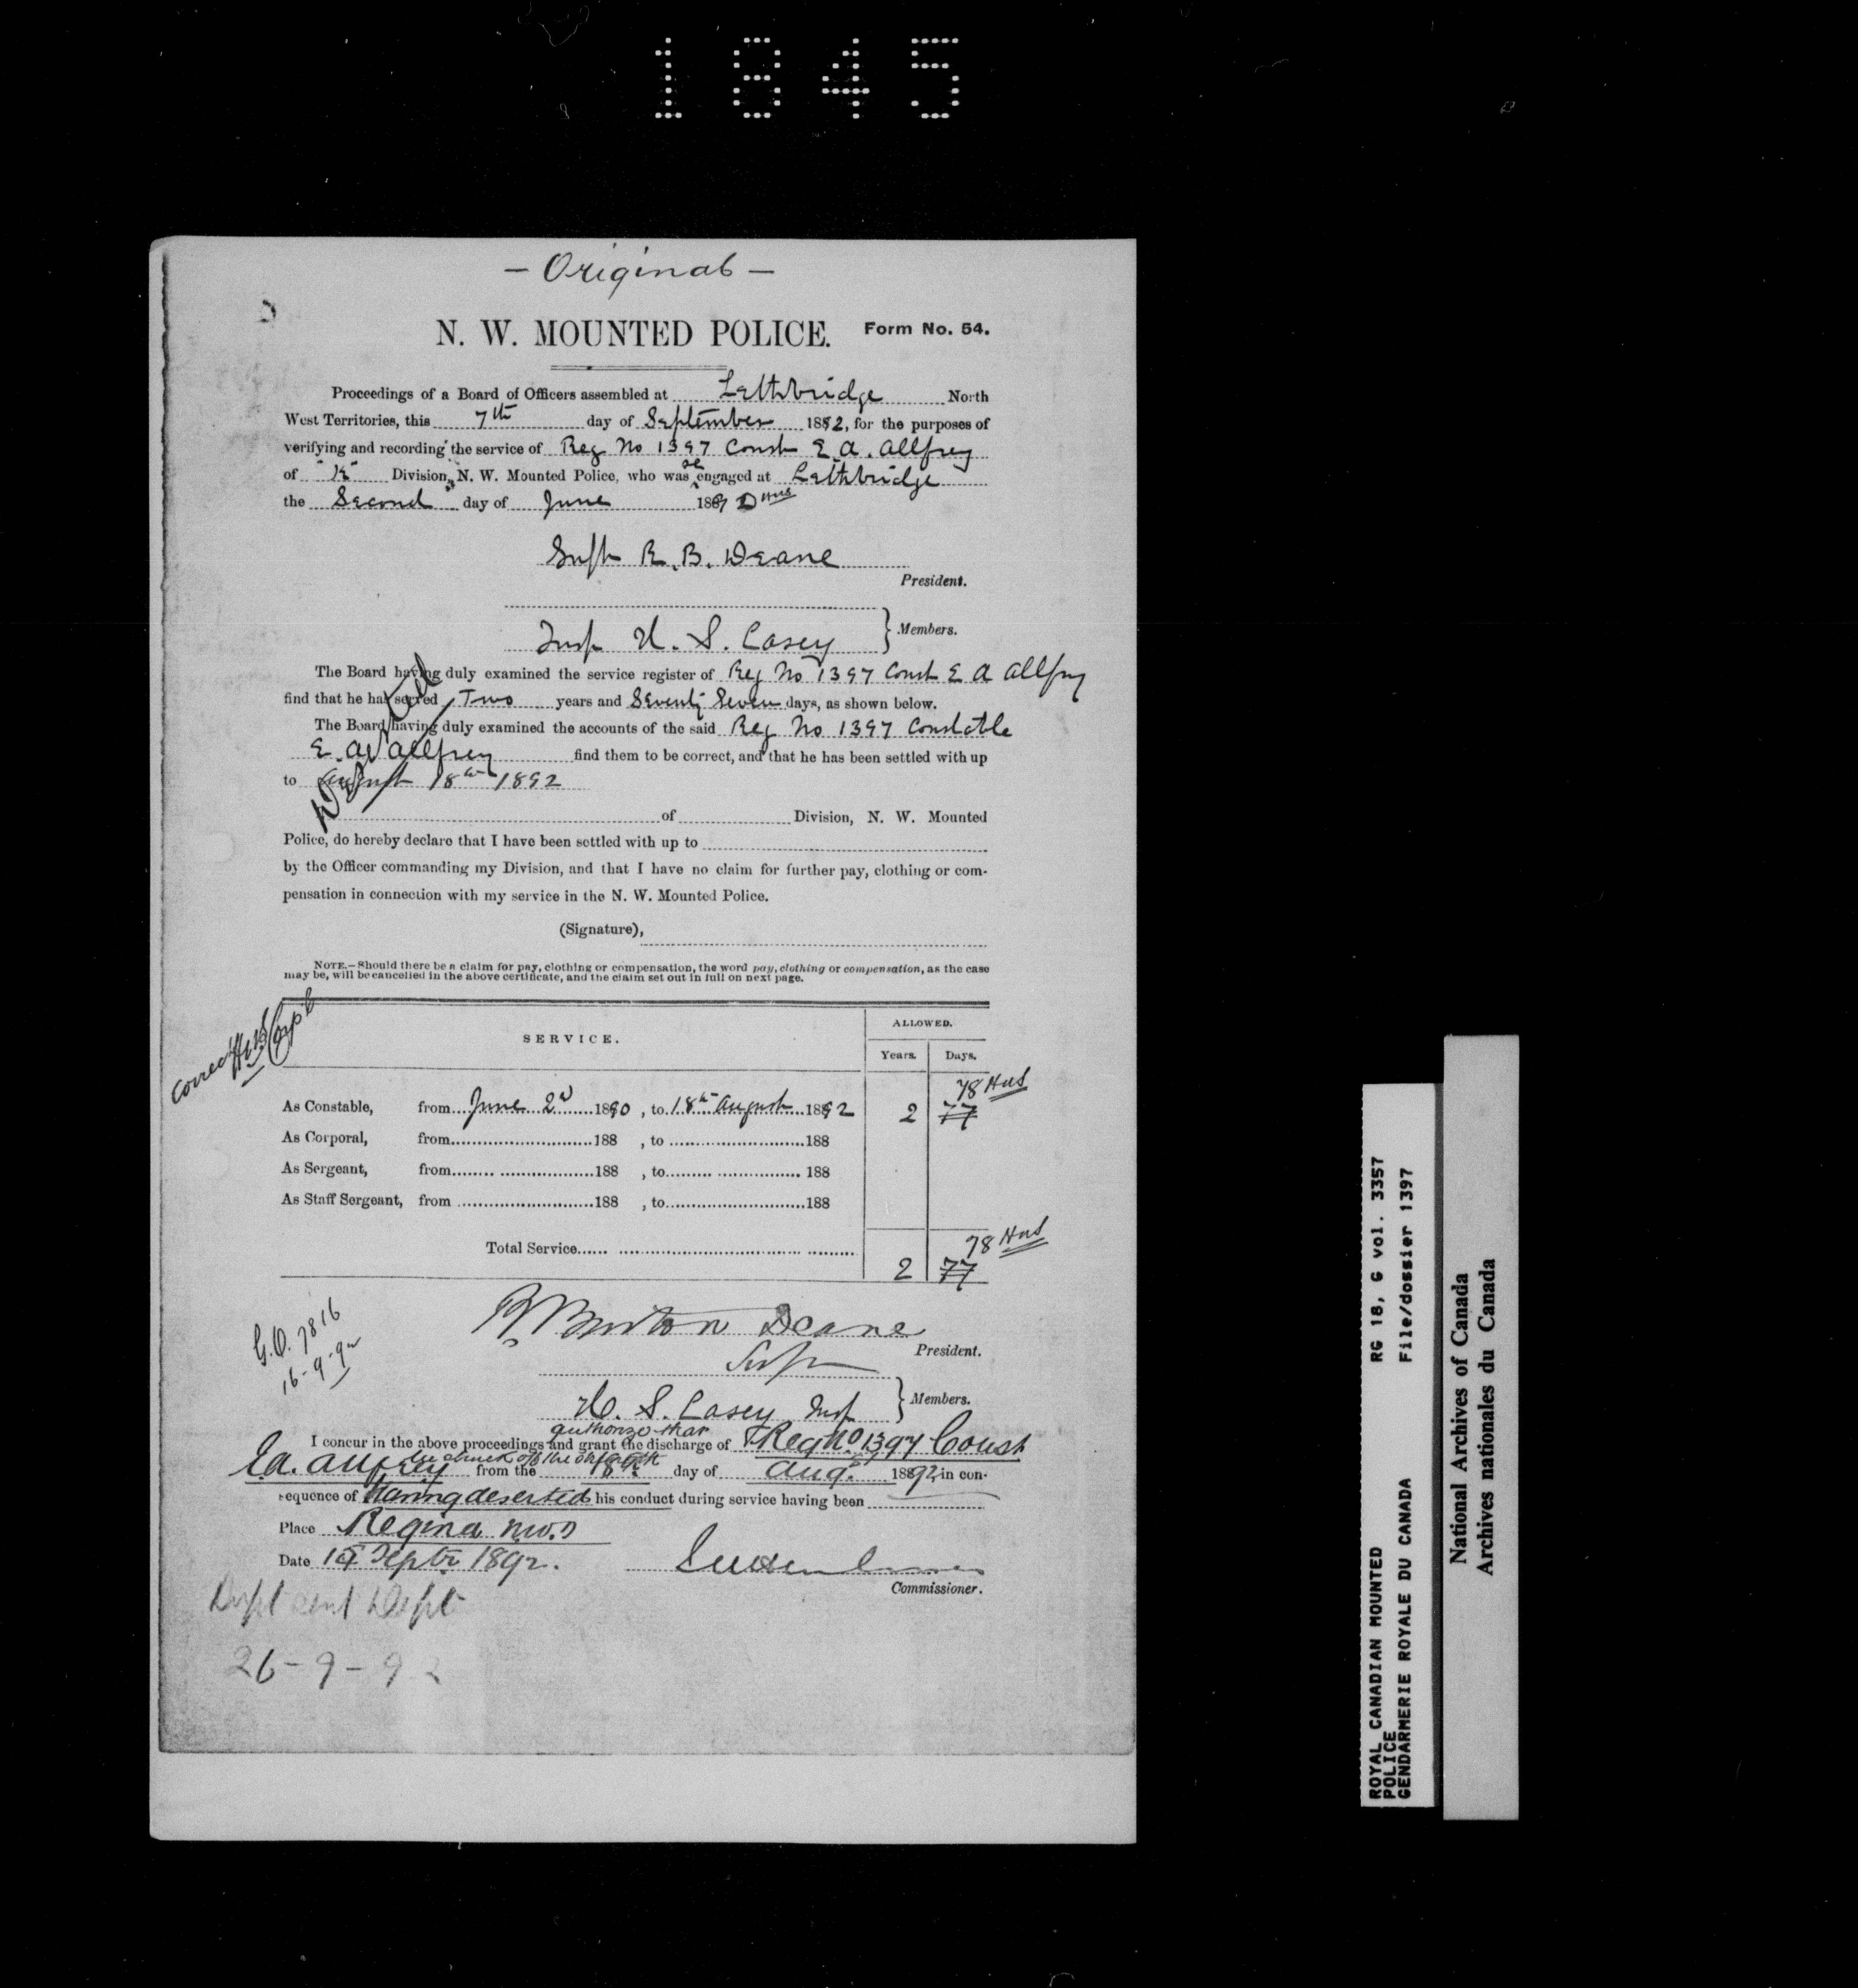 1845
— Original —
N. W. MOUNTED POLICE. Form No. 54.
Proceedings of a Board of Officers assembled at Lethbridge North
West Territories, this 7th day of September 1892, for the purposes of
verifying and recording the service of Reg No 1397 Const E. A. Allfrey
of "K" Division, N. W. Mounted Police, who was re engaged at Lethbridge
the Second day of June 1890
Supt R. B. Deane
President.
Insp H. S. Casey } Members.
The Board having duly examined the service register of Reg No 1397 Const E A Allfrey
find that he has served Two years and Seventy Seven days, as shown below.
The Board having duly examined the accounts of the said Reg No 1397 Constable
E. A. Allfrey find them to be correct, and that he has been settled with up
to August 18th 1892
of Division, N. W. Mounted
Police, do hereby declare that I have been settled with up to
by the Officer commanding my Division, and that I have no claim for further pay, clothing or com-
pensation in connection with my service in the N. W. Mounted Police.
(Signature),
NOTE.—Should there be a claim for pay, clothing or compensation, the word pay, clothing or compensation, as the case
may be, will be cancelled in the above certificate, and the claim set out in full on next page.
Correct
SERVICE.
ALLOWED.
Years. Days.
78
As Constable, from June 2d 1890, to 18th August 1892 2 77
As Corporal, from 188 , to 188
As Sergeant, from 188 , to 188
As Staff Sergeant, from 188 , to 188
78
Total Service 2 77
R Burton Deane
Supt President.
G.O. 7816
16-9-92
H. S. Casey Insp } Members.
authorize that
I concur in the above proceedings and grant the discharge of Reg No 1397 Const
be struck off the strength
E.A. Allfrey from the 18th day of Aug. 1892, in con-
sequence of Having deserted his conduct during service having been
Place Regina N.W.T
Date Septr. 1892.
Commissioner.
Dupl sent Dept
26-9-92
ROYAL CANADIAN MOUNTED RG 18, G vol. 3357
POLICE
GENDARMERIE ROYALE DU CANADA File/dossier 1397
National Archives of Canada
Archives nationales du Canada